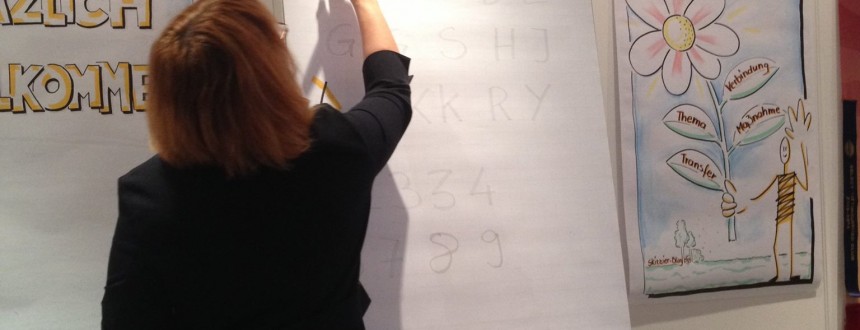 ZLICH
LKOMME
G S H J
K K R Y
3 3 4
7 8 9
Verbindung
Thema
Maßnahme
Transfer